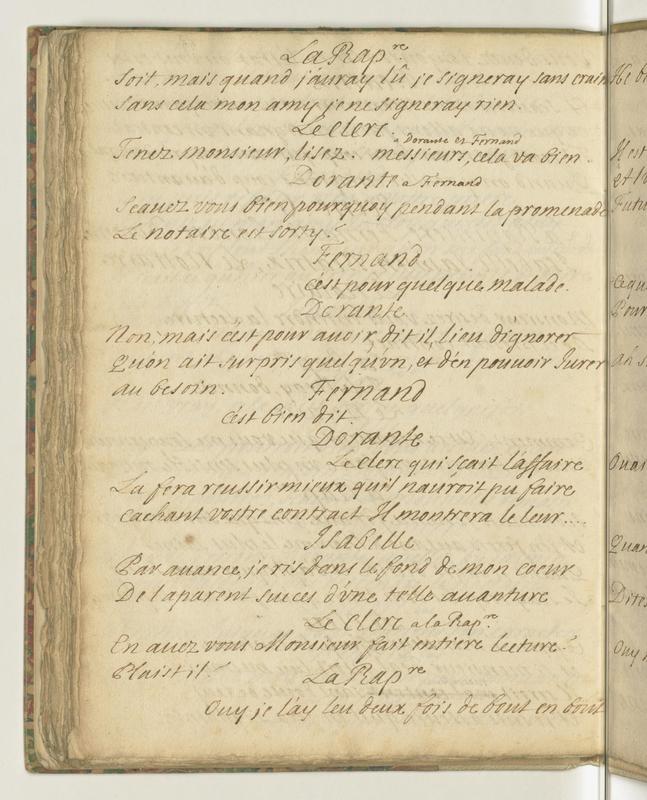 La Rap.re
Soit, mais quand j'auray lû je signeray sans crain
Sans cela mon amy je ne signeray rien.
Le clerc.
a Dorante et Fernand
Tenez monsieur, lisez. messieurs, cela va bien.
Dorante a Fernand
Scauez vous bien pourquoy pendant la promenade
Le notaire est sorty?
Fernand
c'est pour quelque malade.
Dorante
Non, mais c'est pour auoir dit il, lieu d'ignorer
Quon ait surpris quelqu'vn, et d'en pouuoir Iurer
au besoin.
Fernand
c'est bien dit.
Dorante
Le clerc qui sçait l'affaire
La fera reussir mieux quil n'auroit pu faire
cachant vostre contract Il montrera le leur....
Isabelle
Par auance, je ris dans le fond de mon coeur
De l'aparent succes d'vne telle auanture
Le clerc a la Rap.re
En auez vous Monsieur fait entiere lecture?
Plaist il?
La Rap.re
Ouy je l'ay leu deux fois de bout en bout